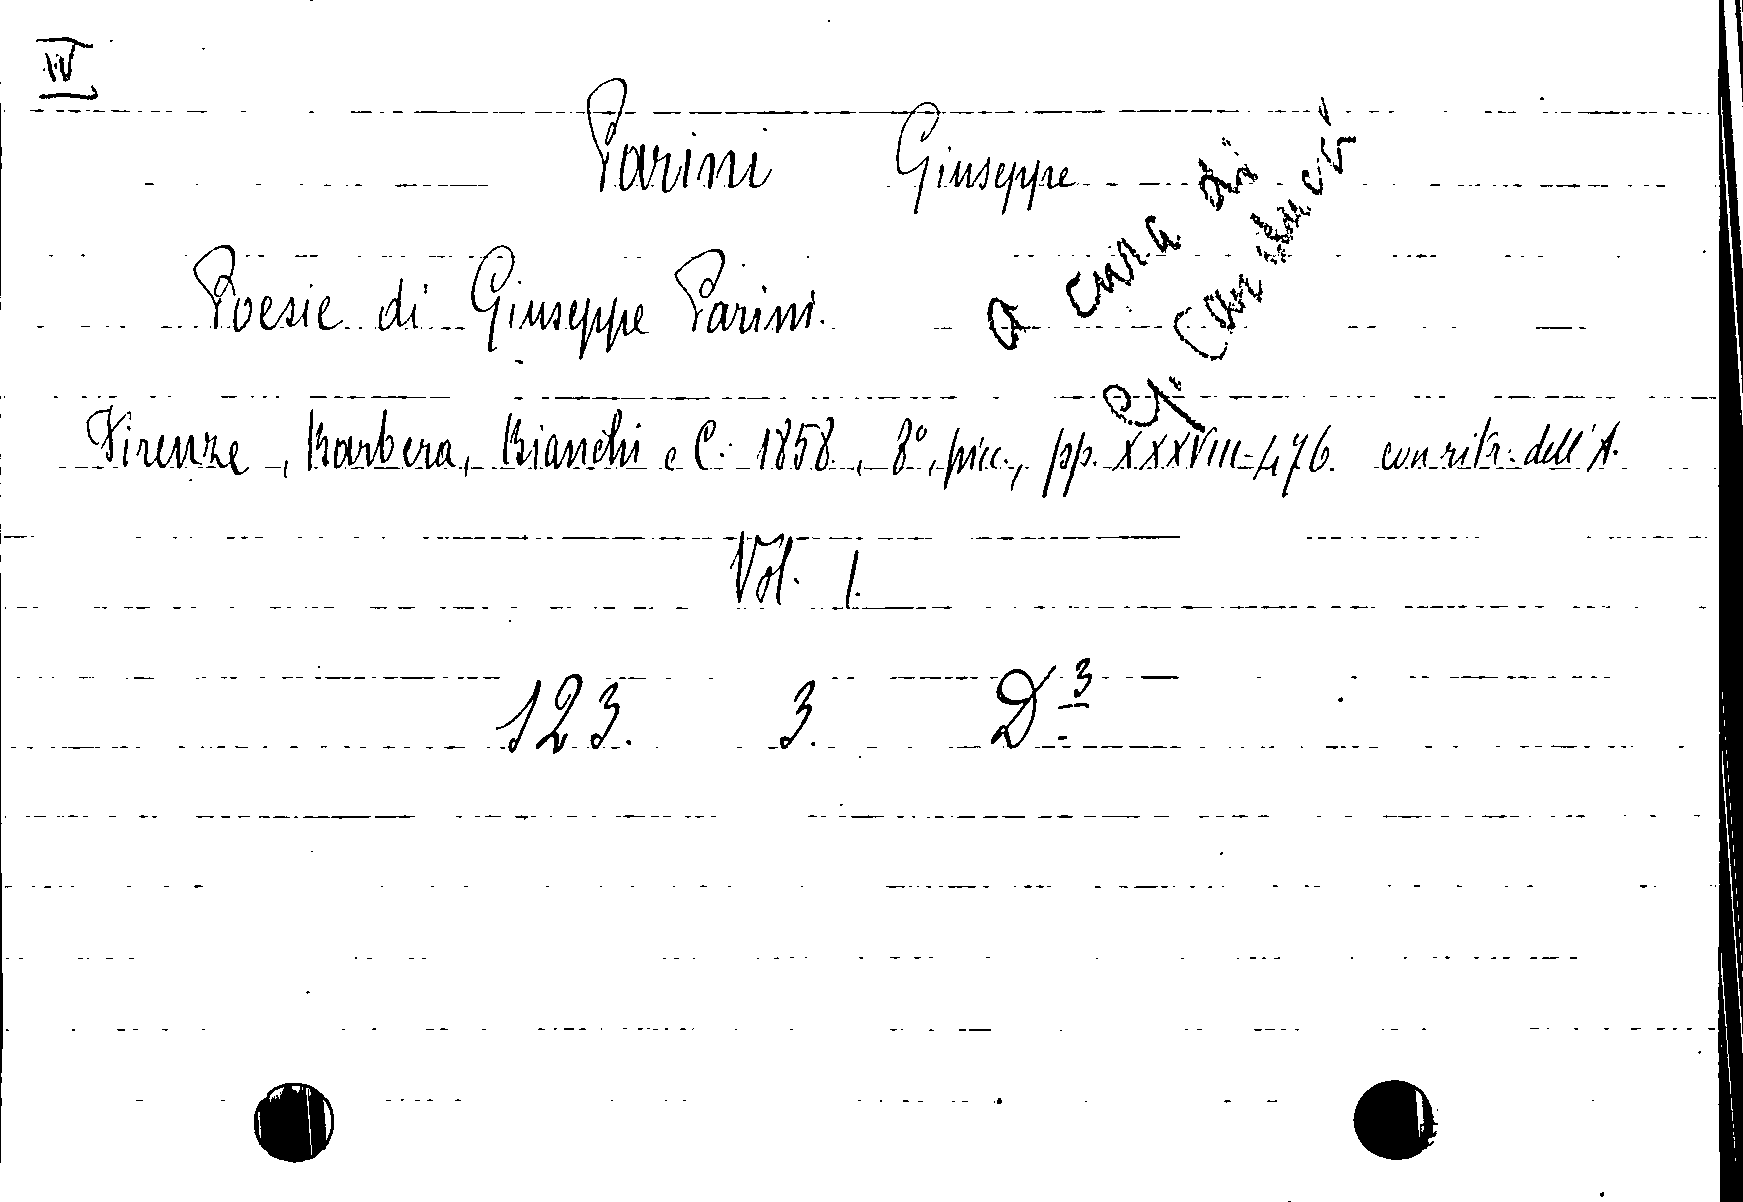 IV
Parini Giuseppe
a cura di
G. Carducci
Poesie di Giuseppe Parini.
Firenze, Barbera, Bianchi e C. 1858, 8°, picc., pp. XXXVIII-476. con ritr. dell'A.
Vol. 1.
123. 3. D.3